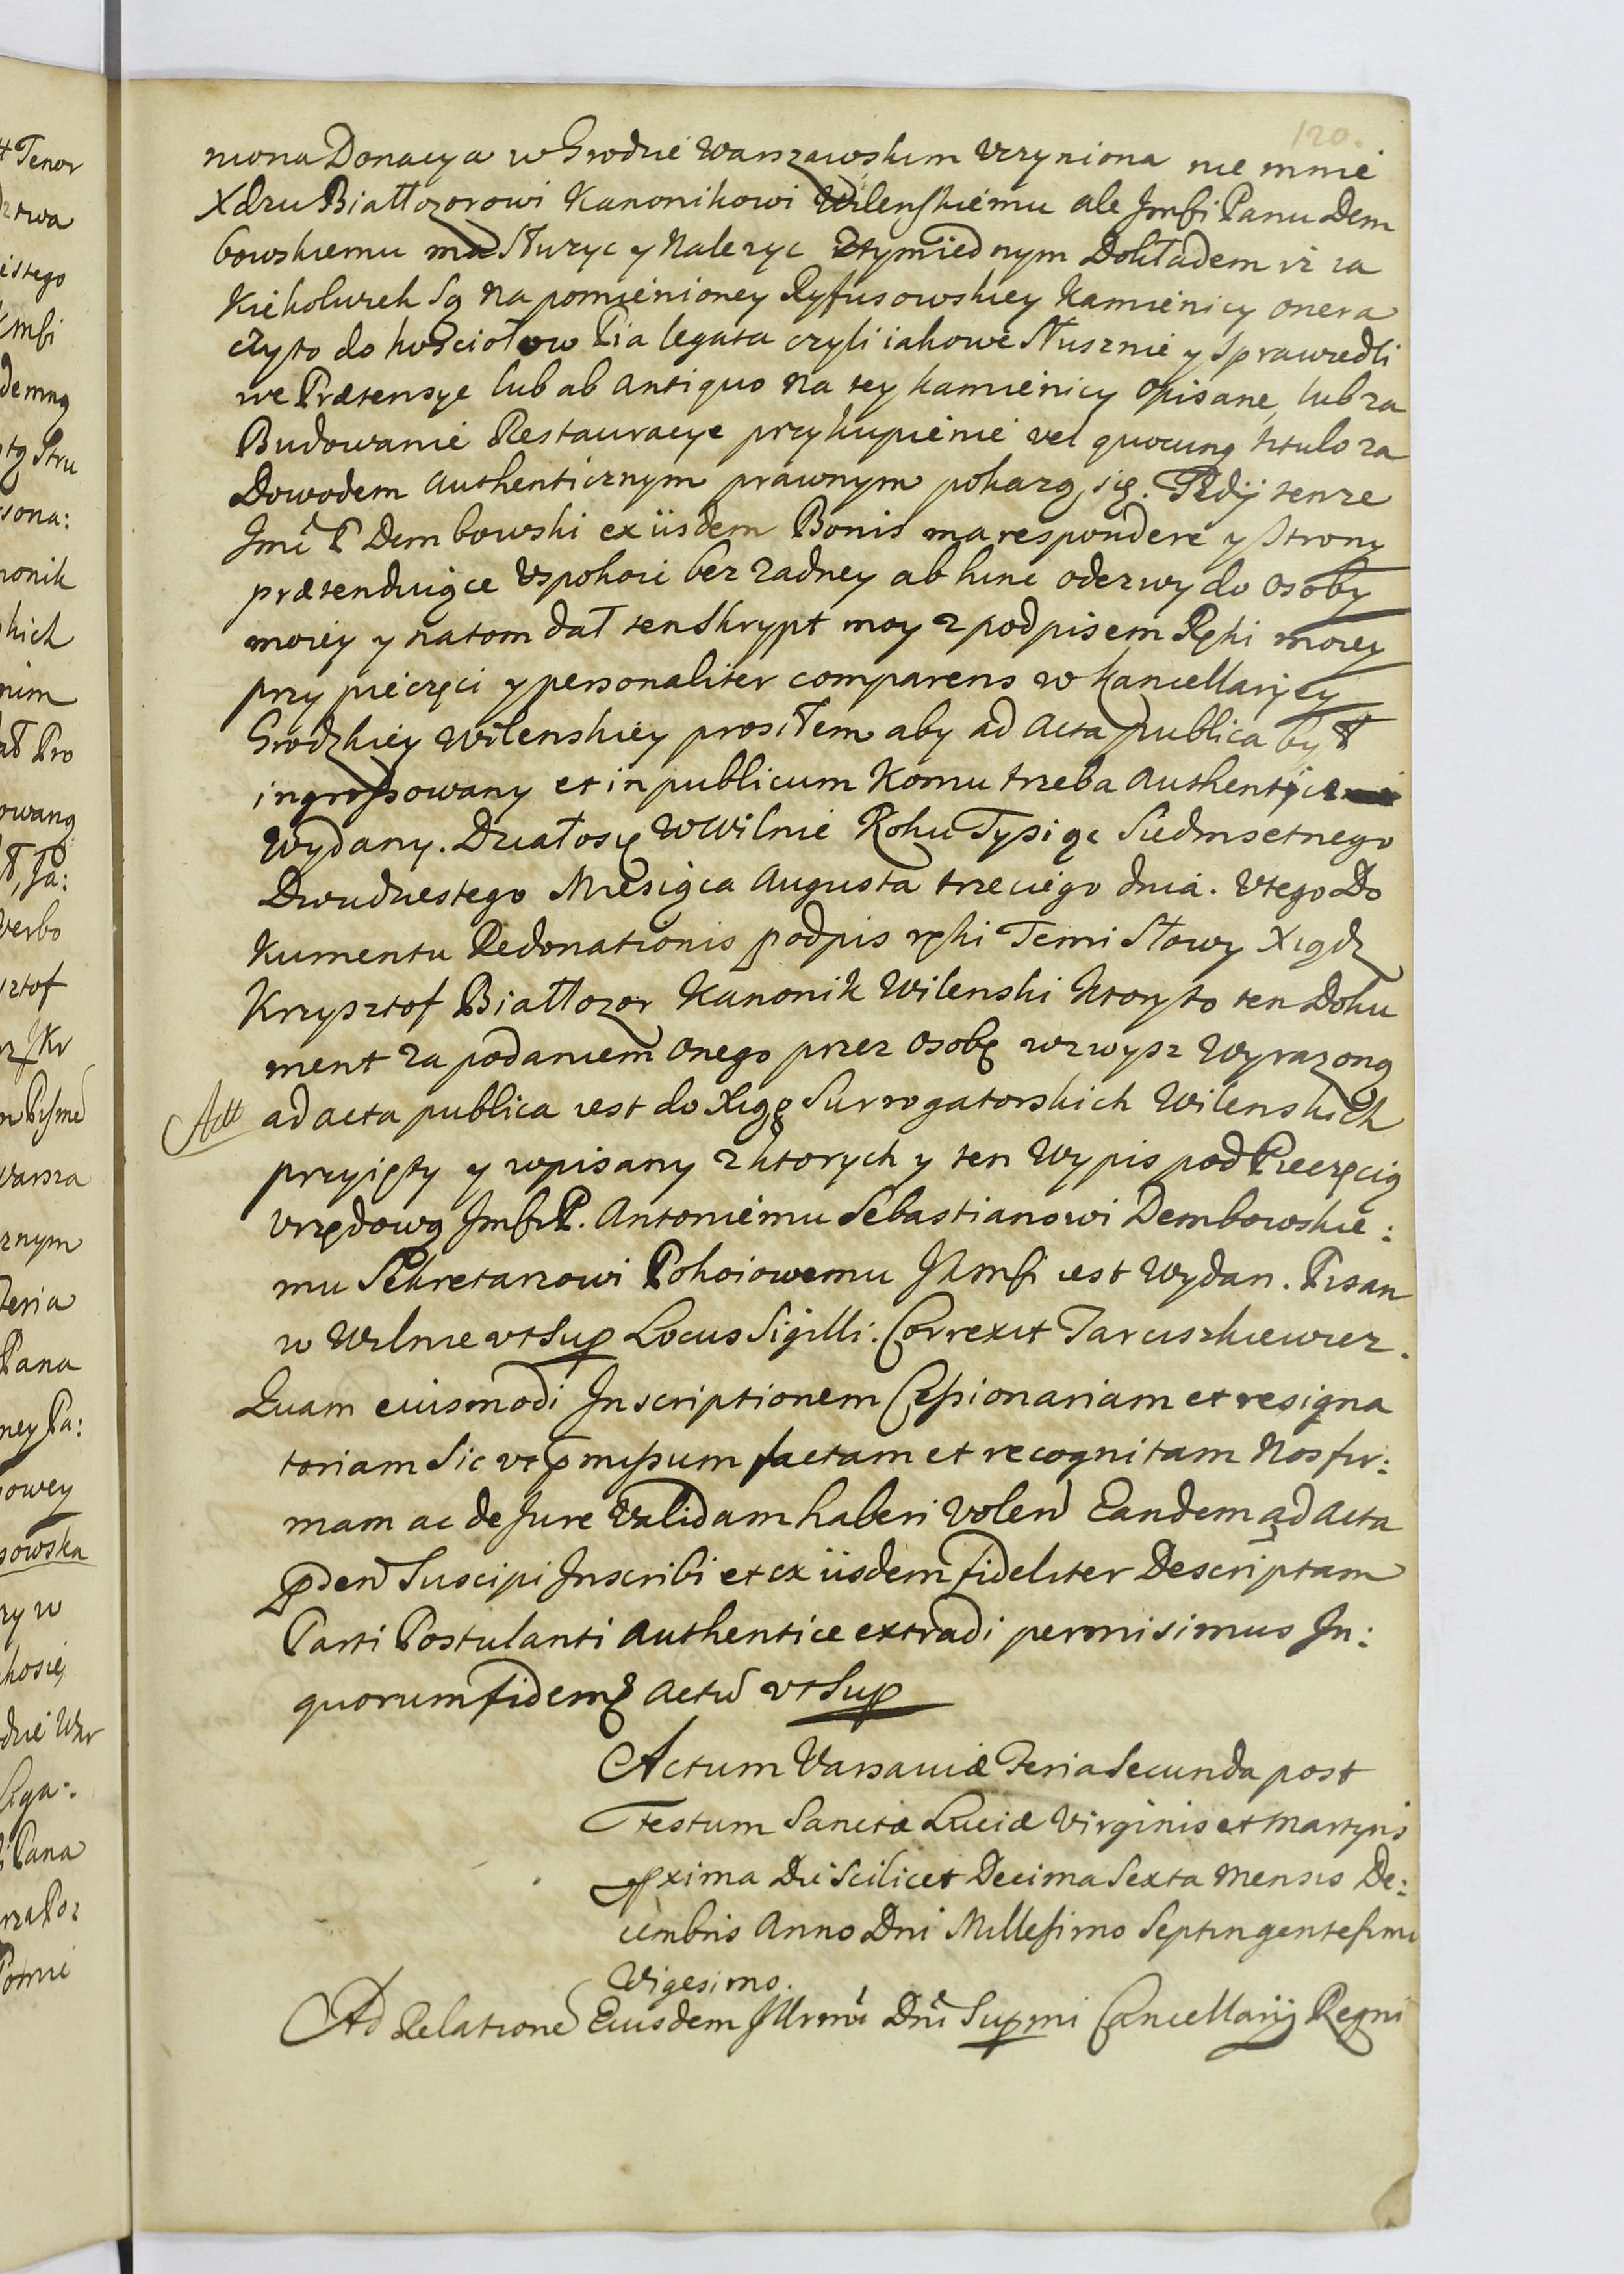 120.
niona Donacya w Grodzie Warszawskim Vczyniona nie mnie
Xdzu Białłozorowi Kanonikowi Wilenskiemu ale Jmsci Panu Dem
bowskiemu ma Słuzyc y Nalezyc Ztymiednym Dokładem iz ia
kiekolwiek Są Na pomienioney Ryfusowskiey Kamienicy onera
czyto do kosciołow Pia legata czyli iakowe Słusznie y Sprawiedli
we Prætensye lub ab antiquo Na tey kamienicy Opisane, lub za
Budowanie Restauracye przykupienie vel quocunq titulo za
Dowodem authenticznym prawnym pokazą, się. Tedy tenze
Jmć P Dembowski ex iisdem Bonis ma respondere y strony
prætenduiące Vspokoic bez Zadney ab hinc odezwy do osoby
moiey y natom dał ten Skrypt moy z podpisem Ręki moiey
przy pieczęci y personaliter comparens w kancellaryey
Grodzkiey Wilenskiey prosiłem aby ad Acta publica był
ingrossowany et in publicum Komu trzeba Authentice
Wydany. Działosię W Wilnie Roku Tysiąc Siedmsetnego
Dwudziestego Miesiąca Augusta trzeciego dnia. Vtego Do
kumentu Redonationis podpis ręki Temi Słowy Xiądz
Krzysztof Białłozor Kanonik Wilenski Ktory to ten Doku
ment za podaniem Onego przez Osobę wzwysz Wyrazoną
Adtt ad acta publica iest do Xiąg Surrogatorskich Wilenskich
przyięty y wpisany z ktorych y ten Wypis pod Pieczęcią
Vrzędową Jmsci P. Antoniemu Sebastianowi Dembowskie:
mu Sekretarzowi Pokoiowemu JKmsci iest Wydan. Pisan
w Wilnie vt Sup Locus Sigilli. Correxit Jarciszkiewicz.
Quam eiusmodi Inscriptionem Cessionariam et resigna
toriam Sic vt pmissum factam et recognitam Nos fir:
mam ac de Jure Validam haberi Volen Eandem ad acta
pden Suscipi Inscribi et ex iisdem fideliter Descriptam
Parti Postulanti Authentice extradi permisimus In:
quorum fidem Actū vt Sup
Actum Varsaviæ Feria Secunda post
Festum Sanctæ Luciæ Virginis et Martyris
pxima Die Scilicet Decima Sexta Mensis De:
cembris Anno Dni Millesimo Septingentesimo
Vigesimo.
Ad Relatione Eiusdem Illrmi Dni Supmi Cancellarij Regni